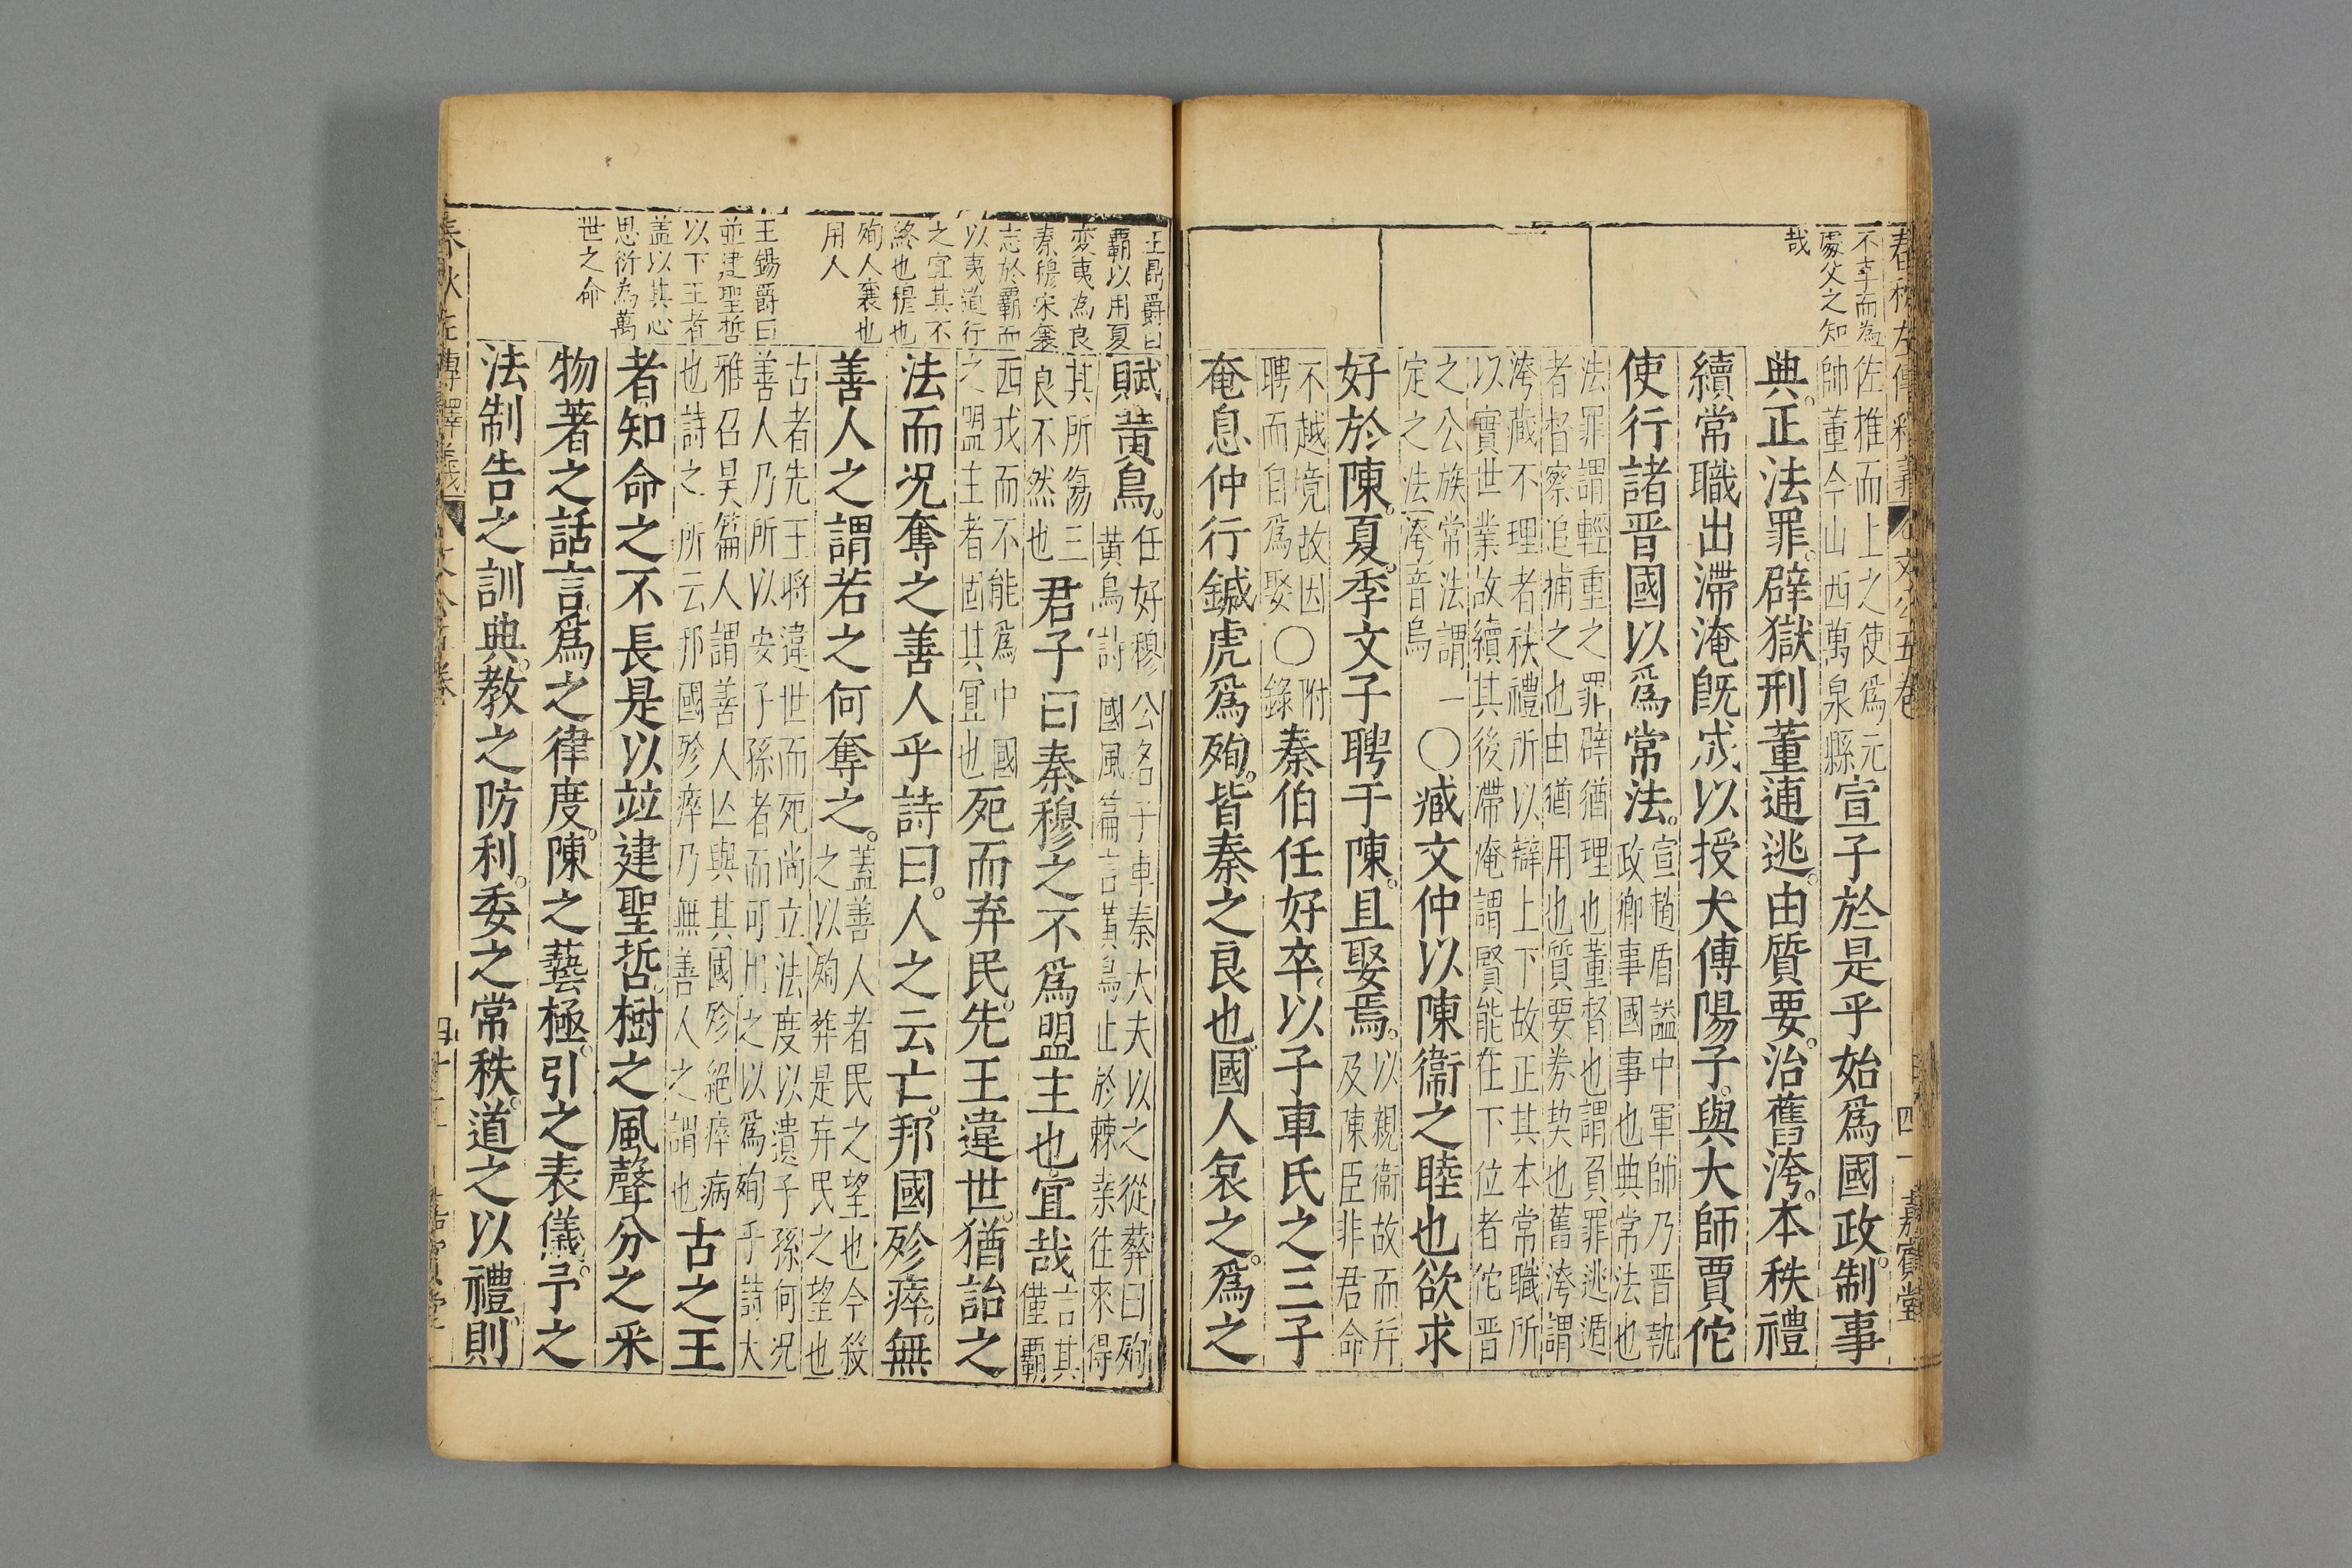 春秋左傳釋義 文公五卷 四一 嘉賓堂
不幸而為
處父之知
哉
佐推而上之使爲元
帥董今山西萬泉縣
宣子於是乎始爲國政。制事
典。正法罪。辟獄刑董逋逃。由質要。治舊洿。本秩禮
續常職出滯淹旣成以授大傅陽子。與大師賈佗
使行諸晋國以爲常法。
宣趙盾謚中軍帥乃晋執
政卿事國事也典常法也
法罪謂輕重之罪辟猶理也董督也謂負罪逃遁
者督察追捕之也由猶用也質要券契也舊洿謂
洿蔵不理者秩禮所以辯上下故正其本常職所
以實世業故續其後滯淹謂賢能在下位者佗晋
之公族常法謂一
定之法洿音烏
○臧文仲以陳衞之睦也欲求
好於陳。夏。季文子聘于陳。且娶焉。
以親衞故而幷
及陳臣非君命
不越境故因
聘而自爲娶
○附
錄
秦伯任好卒。以子車氏之三子
奄息仲行鍼虎爲殉。皆秦之良也。國人哀之。爲之
王鼎爵曰
霸以用夏
変夷為良
秦穆宋襄
志於霸而
以夷道行
之宜其不
終也穆也
殉人襄也
用人
王錫爵曰
並建聖哲
以下王者
盖以其心
思衍為萬
世之命
賦黄鳥。
任好穆公名子車秦大夫以之從葬曰殉
黄鳥詩國風篇言黄鳥止於棘桒往來得
其所傷三
良不然也
君子曰秦穆之不爲盟主也宜哉
言其
僅霸
西戎而不能爲中國
之盟主者固其宜也
死而弃民。先王違世。猶詒之
法而况奪之善人乎詩曰。人之云亡。邦國殄瘁。無
善人之謂若之何奪之。
蓋善人者民之望也今殺
之以殉葬是弃民之望也
古者先王將違世而死尚立法度以遺子孫何况
善人乃所以安子孫者而可用之以爲殉乎詩大
雅召旻篇人謂善人亾與其國殄絕瘁病
也詩之所云邦國殄瘁乃無善人之謂也
古之王
者知命之不長是以竝建聖哲。樹之風聲分之采
物著之話言爲之律度。陳之藝極。引之表儀。予之
法制告之訓典。教之防利。委之常秩。道之以禮。則
春秋左傳釋義 嘉賓堂